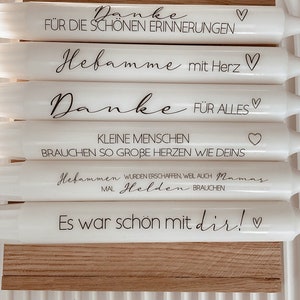 Danke
FÜR DIE SCHÖNEN ERINNERUNGEN
Hebamme mit Herz
Danke FÜR ALLES
KLEINE MENSCHEN
BRAUCHEN SO GROßE HERZEN WIE DEINS
Hebammen WURDEN ERSCHAFFEN, WEIL AUCH Mamas
MAL Helden BRAUCHEN
Es war schön mit dir!